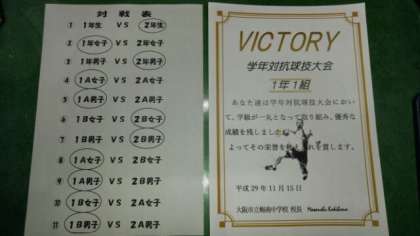 対戦表
① 1年生 VS 2年生
② 1年女子 VS 2年女子
③ 1年男子 VS 2年男子
④ 1A女子 VS 2A女子
⑤ 1A男子 VS 2A男子
⑥ 1B女子 VS 2B女子
⑦ 1B男子 VS 2B男子
⑧ 1A女子 VS 2B女子
⑨ 1A男子 VS 2B男子
⑩ 1B女子 VS 2A女子
⑪ 1B男子 VS 2A男子
VICTORY
学年対抗球技大会
1年1組
あなた達は学年対抗球技大会において、
学級が一丸となって取り組み、優秀な
成績を残しました
よってその栄誉を 賞します。
平成29年11月15日
大阪市立 中学校 校長